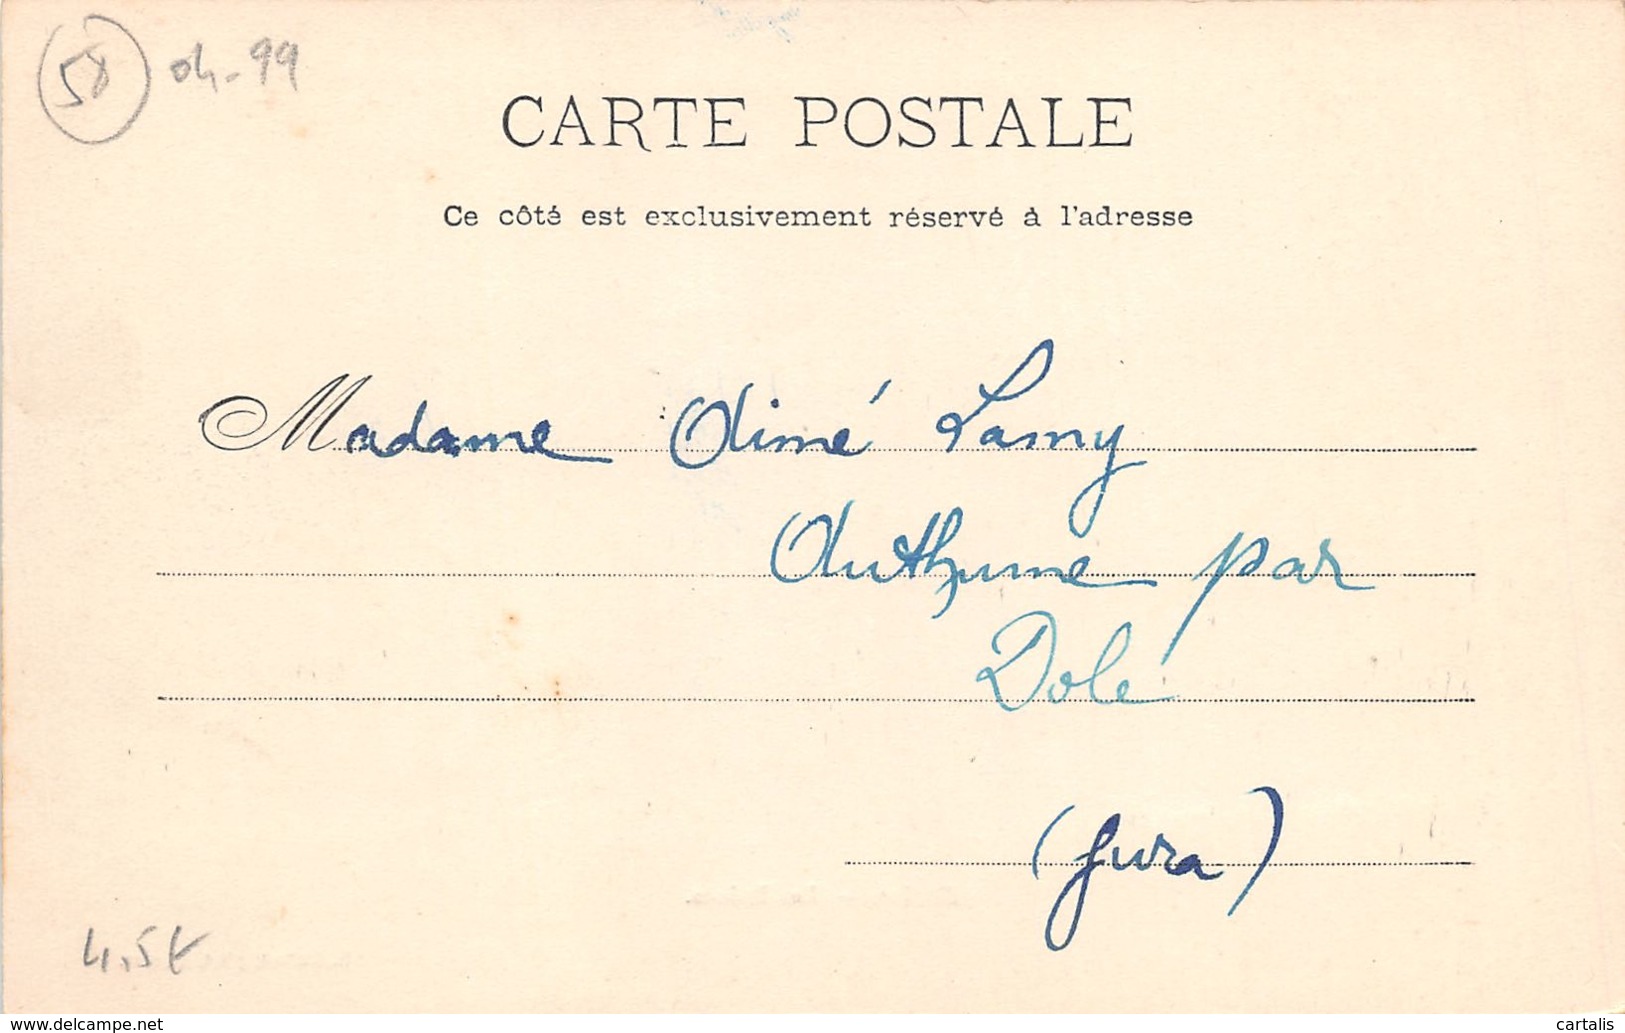 58 04-99
CARTE POSTALE
Ce côté est exclusivement réservé à l'adresse
Madame Aimé Lamy
Authume par
Dole
(Jura)
4,5€
www.delcampe.net
cartalis